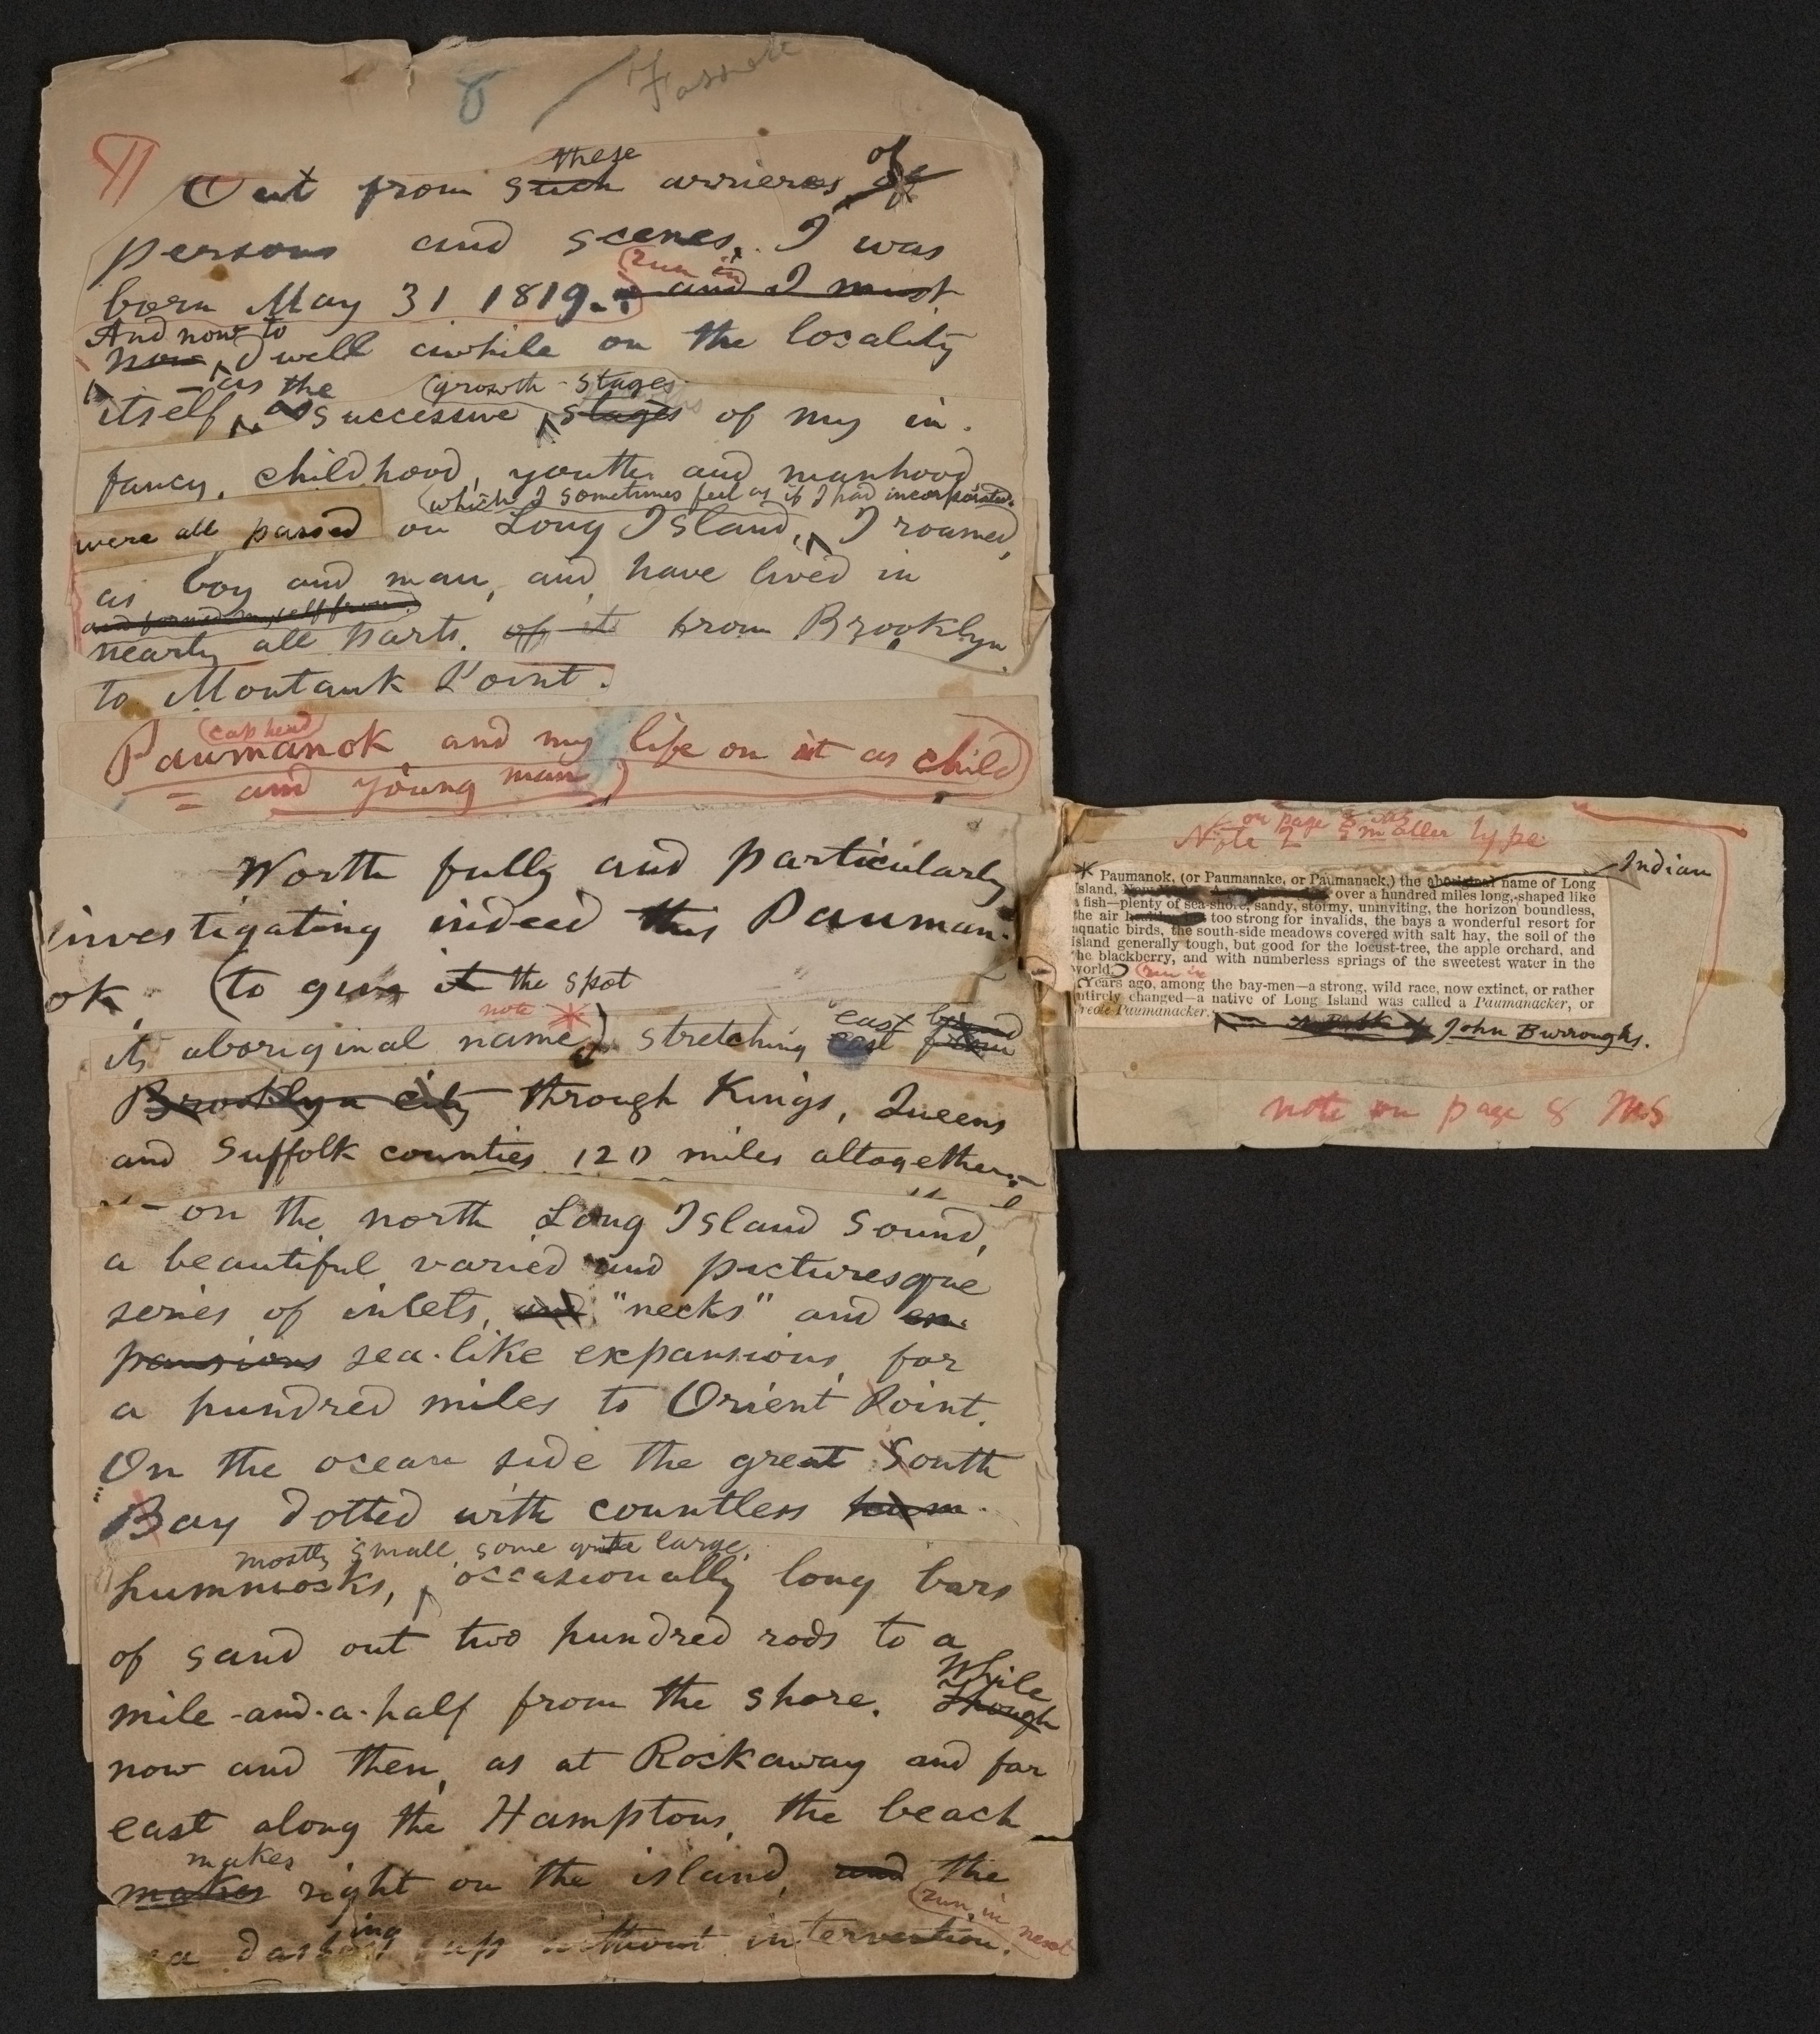 8 / Fassett
these of
Out from such arrieres of
persons and scenes, I was
run in
born May 31 1819. and I must
And now to
now, dwell awhile on the locality
– as the growth-stages
itself, as successive stages of my in-
fancy, childhood, youth and manhood
(which I sometimes feel as if I had incorporated.
were all passed on Long Island, I roamed,
as boy and man, and have lived in
and formed myself from
nearly all parts, of it from Brooklyn
to Montauk Point.
(cap head)
Paumanok, and my life on it as child
and young man
Worth fully and particularly
investigating indeed this Pauman-
ok, (to give it the spot
note *
its aboriginal name) stretching east from
east
Brooklyn city through Kings, Queens
and Suffolk counties, 120 miles altogether
– on the north Long Island Sound,
a beautiful, varied and picturesque
series of inlets, and "necks" and ex-
pansions sea-like expansions, for
a hundred miles to Orient Point.
On the ocean side the great South
Bay dotted with countless hum-
mostly small, some quite large,
hummocks, occasionally long bars
of sand out two hundred rods to a
While
mile-and-a-half from the shore. Though
now and then, as at Rockaway and far
east along the Hamptons, the beach
makes
makes right on the island, and the
run in next
ea dashing up without intervention.
on page 8 as
Note 2 smaller type
Indian
* Paumanok, (or Paumanake, or Paumanack,) the aboriginal name of Long
Island, over a hundred miles long, shaped like
a fish—plenty of sea-shore, sandy, stormy, uninviting, the horizon boundless,
the air too strong for invalids, the bays a wonderful resort for
aquatic birds, the south-side meadows covered with salt hay, the soil of the
island generally tough, but good for the locust-tree, the apple orchard, and
he blackberry, and with numberless springs of the sweetest water in the
world. run in
Years ago, among the bay-men—a strong, wild race, now extinct, or rather
ntirely changed—a native of Long Island was called a Paumanacker, or
reole-Paumanacker.
John Burroughs.
note on page 8 MS